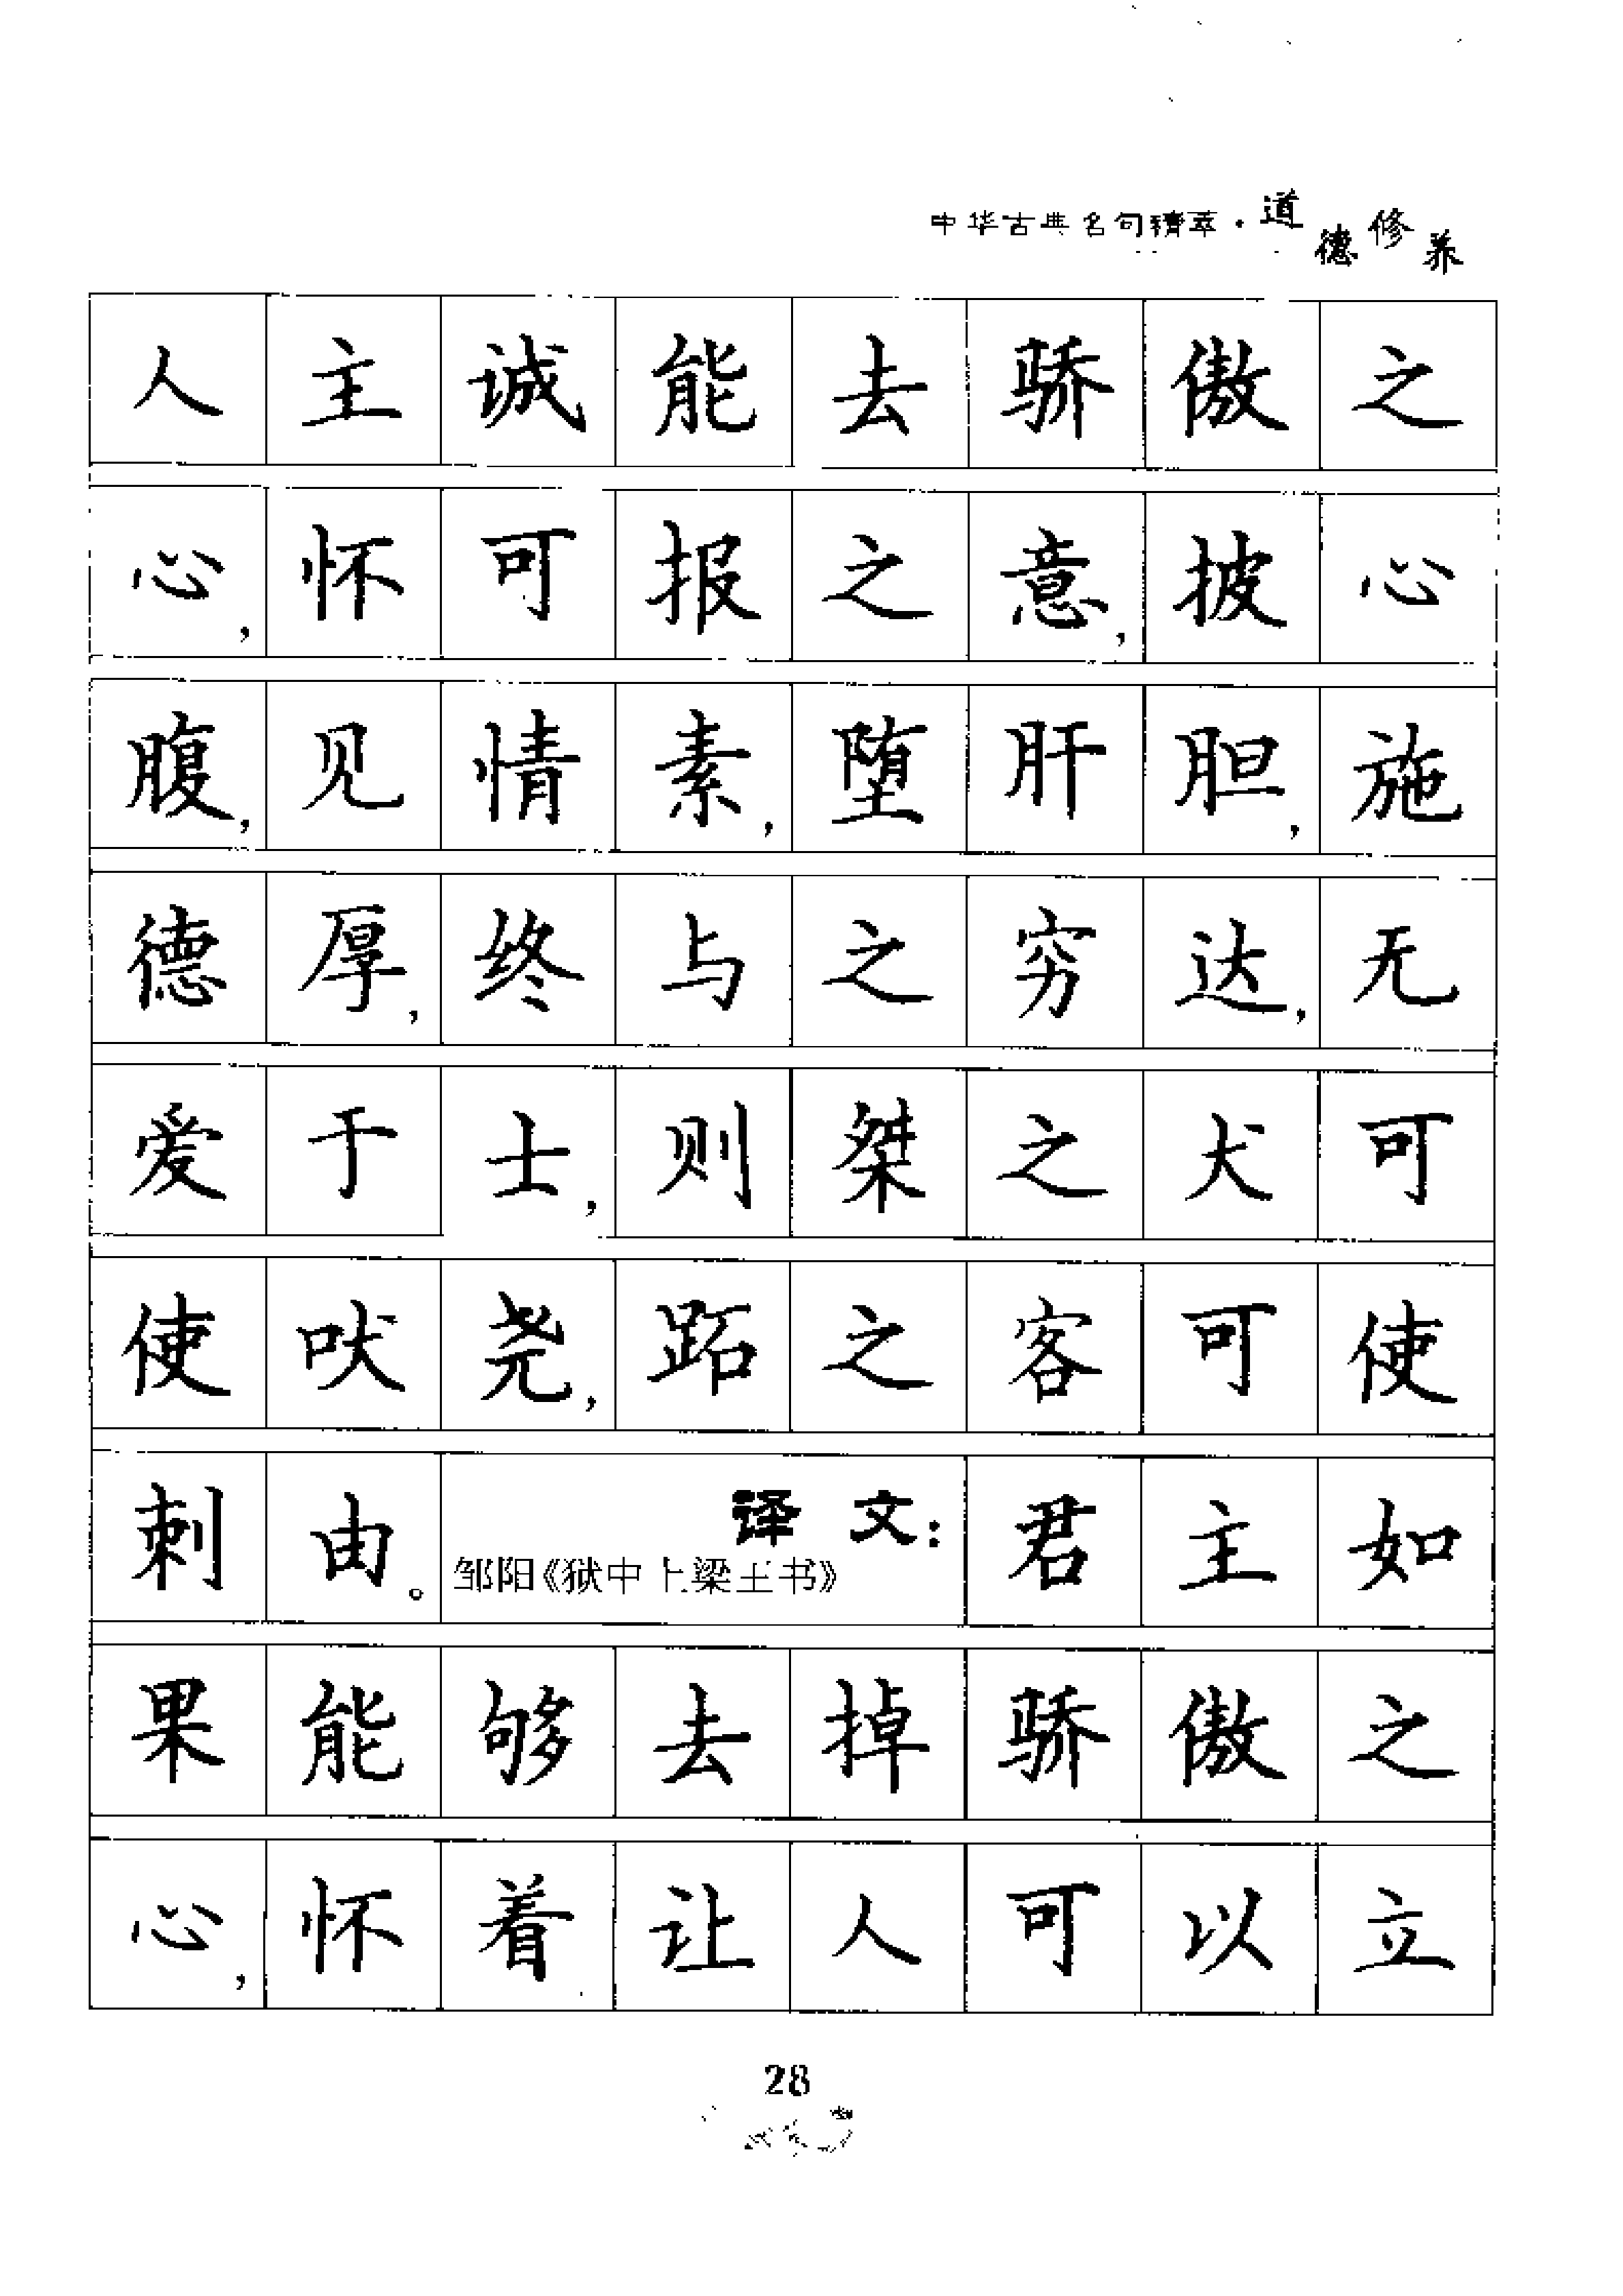 中华古典名句精萃·道德修养
人主诚能去骄傲之
心,怀可报之意,披心
腹,见情素,堕肝胆,施
德厚,终与之穷达,无
爱于士,则桀之犬可
使吠尧,跖之客可使
刺由。 译文:君主如
邹阳《狱中上梁王书》
果能够去掉骄傲之
心,怀着让人可以立
28